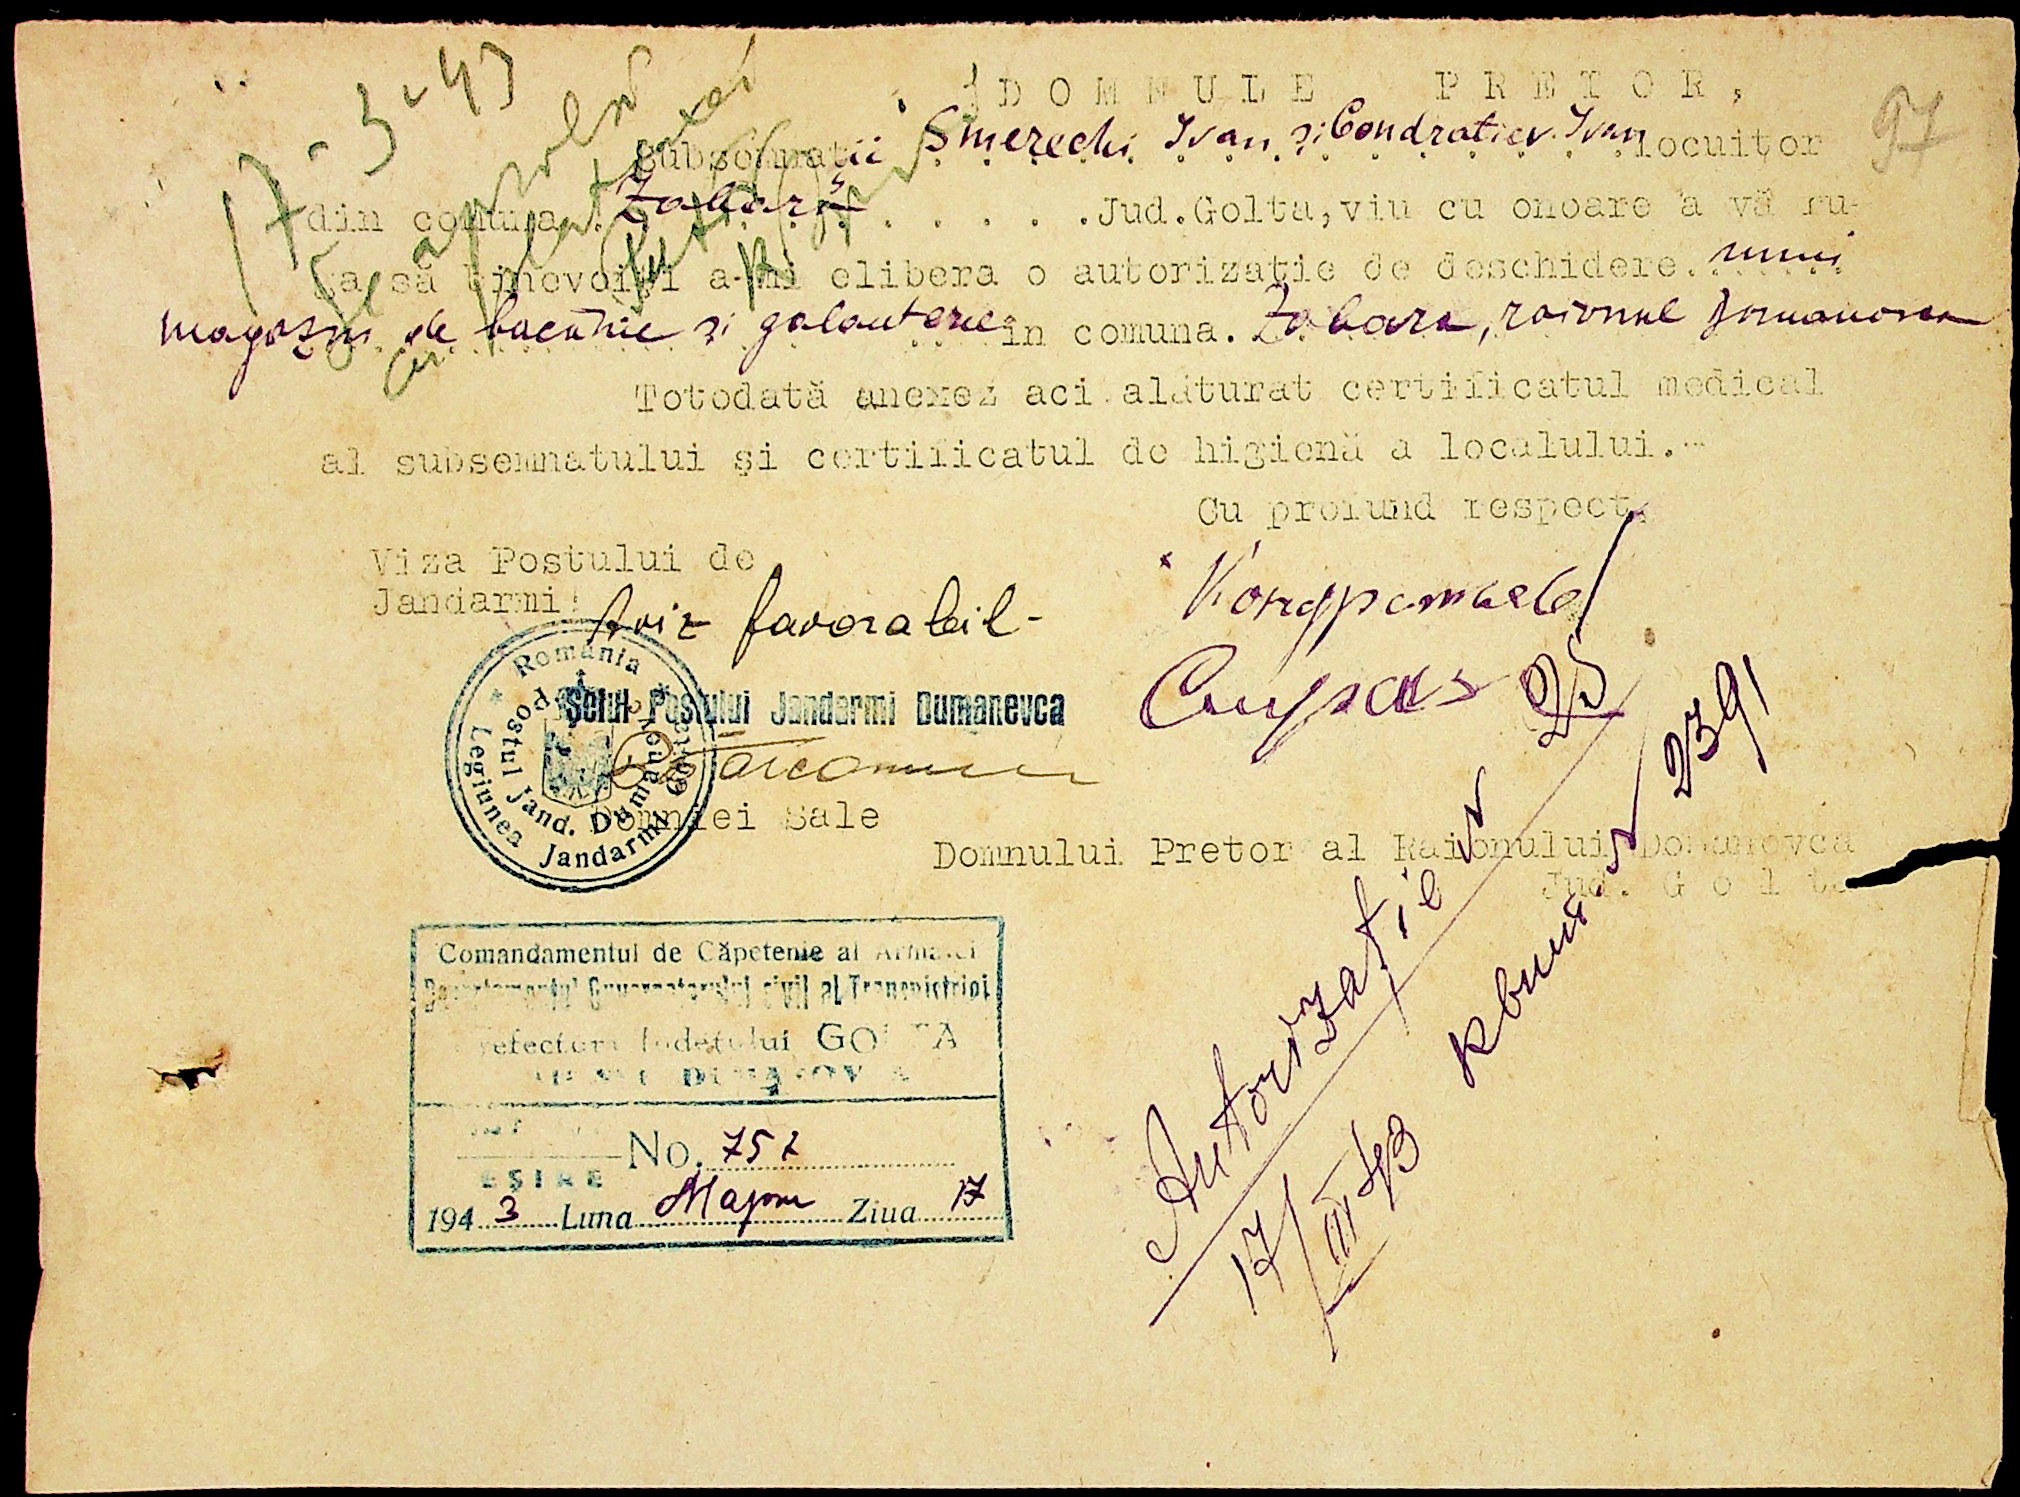 17-3-43
97
DOMNULE PRETOR,
Subsemnatii Smerechi Ivan și Condratiev Ivan locuitor
din comuna Zabara . . . . . Jud.Golta, viu cu onoare a vă ru-
ga să binevoiți a-mi elibera o autorizație de deschidere unui
magazin de băcănie și galanterie în comuna. Zabara, raionul Domanovca
Totodată anexez aci alăturat certificatul medical
al subsemnatului și certificatul de higienă a localului.-
Cu profund respect,
Viza Postului de
Jandarmi!
Aviz favorabil-
Șeful Postului Jandarmi Dumanevca
România
Legiunea Jandarmi Golta
Postul Jand. Dumanevca
Domniei Sale
Domnului Pretor al Raionului Domanovca
Jud. Golta
Comandamentul de Căpetenie al Armatei
Departamentul Guvernatorului civil al Transnistriei
Prefectura Județului GOLTA
No. 757
EȘIRE
1943 Luna Martie Ziua 17
Autorizație N 25
17/III 43
N 2391